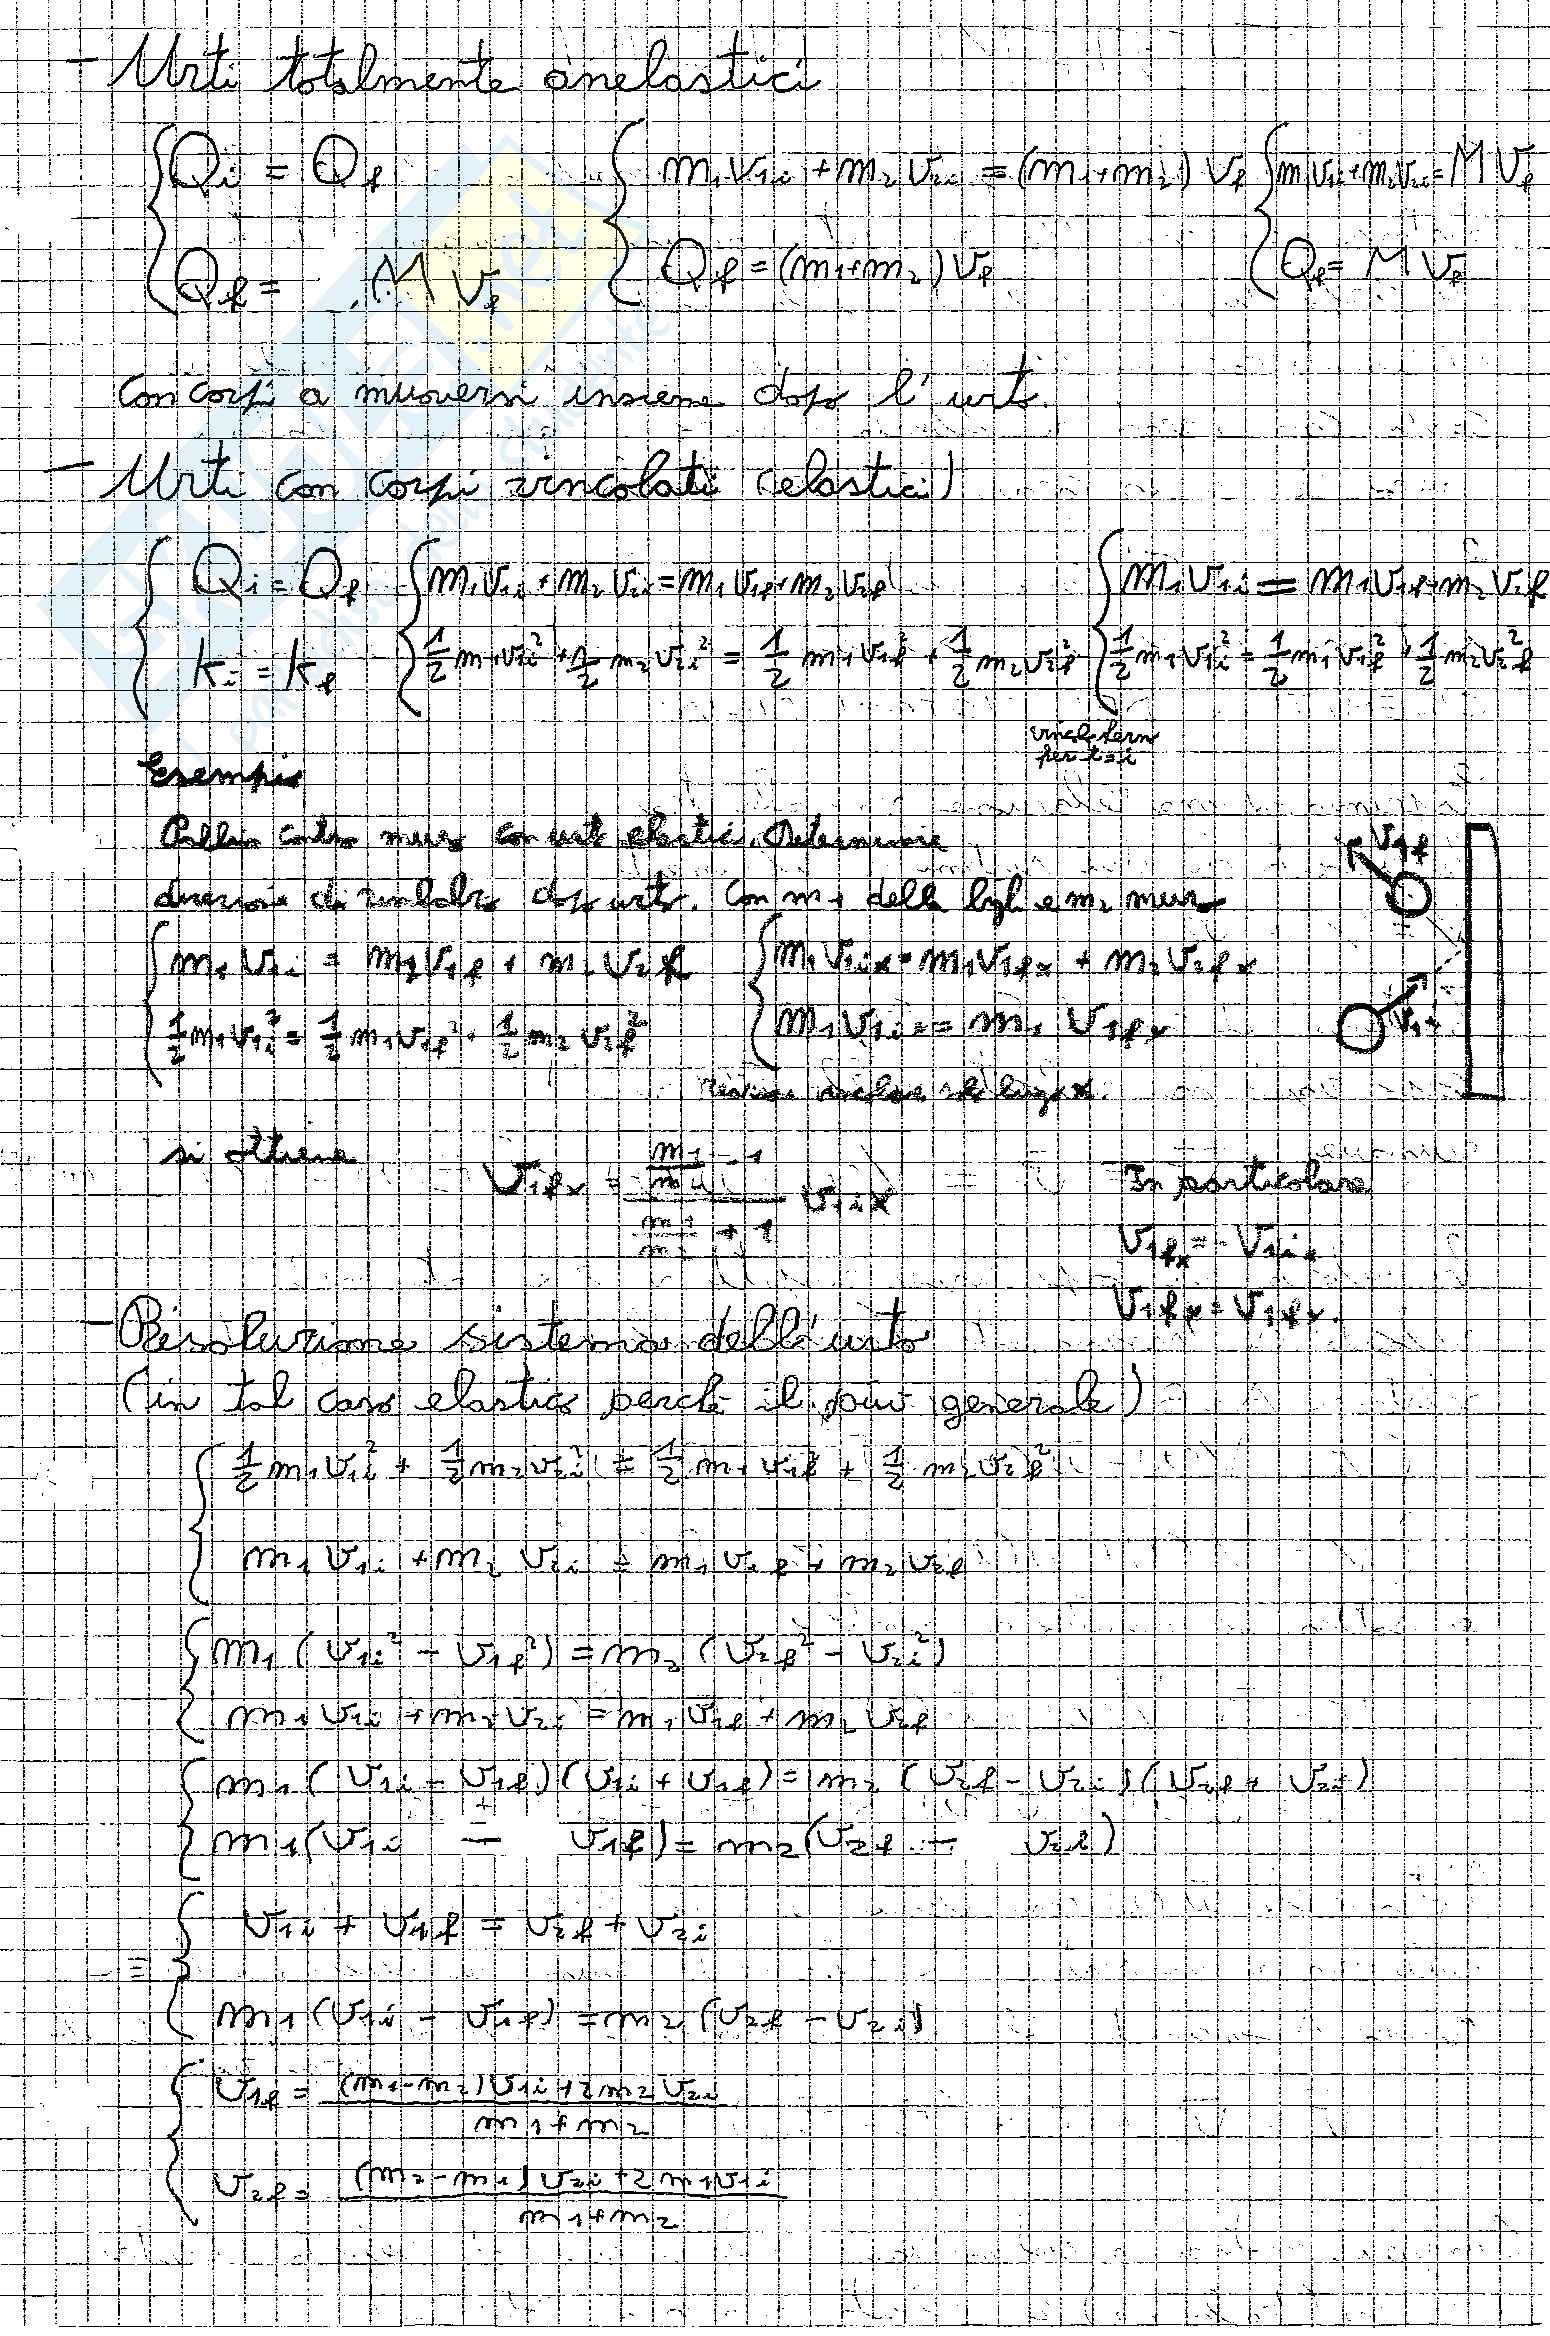 - Urti totalmente anelastici
{ Qi = Qf { m1 v1i + m2 v2i = (m1+m2) vf { m1v1i+m2v2i = M vf
Qf = M vf Qf = (m1+m2) vf Qf = M vf
con corpi a muoversi insieme dopo l'urto.
- Urti con corpi vincolati (elastici)
{ Qi = Qf { m1v1i + m2 v2i = m1 v1f + m2 v2f { m1 v1i = m1v1f + m2 v2f
ki = kf 1/2 m1v1i² + 1/2 m2 v2i² = 1/2 m1v1f² + 1/2 m2v2f² 1/2 m1v1i² = 1/2 m1v1f² + 1/2 m2v2f²
per t=i
Esempio
contro muro con urto elastico. Determinare
direzione di rimbalzo dopo urto. Con m1 della e m2 muro
v1f
{ m1 v1i = m1v1f + m2 v2f { m1 v1ix = m1v1fx + m2 v2fx
1/2 m1v1i² = 1/2 m1v1f² + 1/2 m2 v2f²
v1i
si ottiene v1fx = v1ix In particolare
v1fx = - v1ix
- Risoluzione sistema dell'urto
(in tal caso elastico perché il più generale)
{ 1/2 m1v1i² + 1/2 m2v2i² = 1/2 m1 v1f² + 1/2 m2 v2f²
m1 v1i + m2 v2i = m1 v1f + m2 v2f
{ m1 (v1i² - v1f²) = m2 (v2f² - v2i²)
m1 v1i + m2 v2i = m1 v1f + m2 v2f
{ m1 (v1i - v1f)(v1i + v1f) = m2 (v2f - v2i)(v2f + v2i)
m1(v1i - v1f) = m2(v2f - v2i)
≡ { v1i + v1f = v2f + v2i
m1 (v1i - v1f) = m2 (v2f - v2i)
{ v1f = (m1-m2)v1i + 2m2 v2i / m1+m2
v2f = (m2-m1) v2i + 2m1v1i / m1+m2